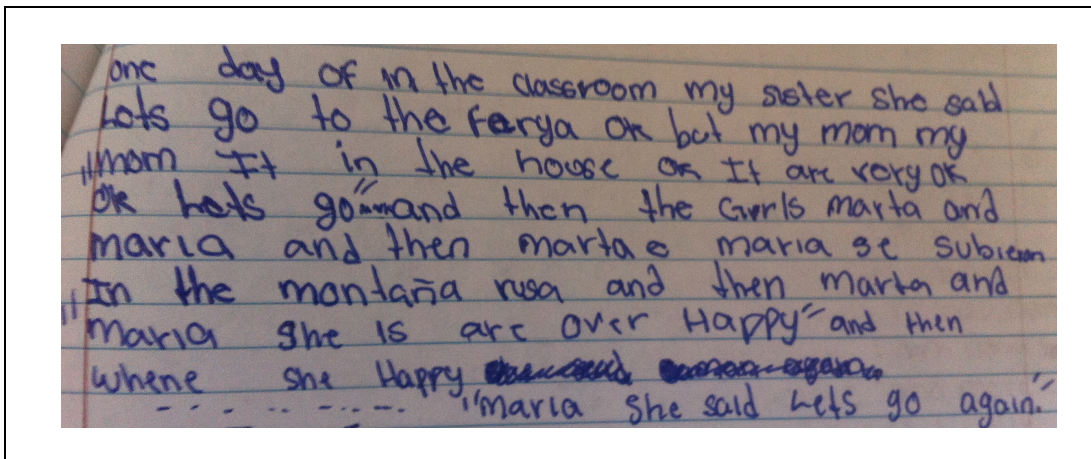 one day of in the classroom my sister she said
Lets go to the ferya ok but my mom my
"mom It in the house ok It are very ok
ok Lets go" and then the Gerls marta and
maria and then marta e maria se subieron
In the montaña rusa and then marta and
"maria she is are over Happy" and then
whene she Happy
"maria she said Lets go again."